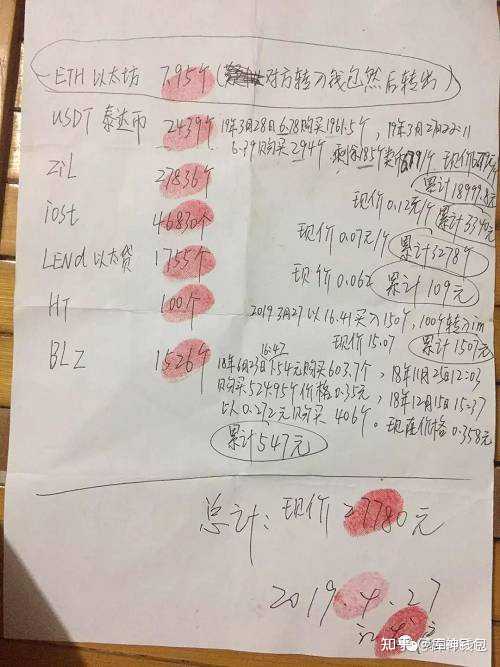 ETH 以太坊 7.95个 (对方转入钱包然后转出)
USDT 泰达币 2439个 19年3月28日6.78购买1961.5个, 19年3月2日22:11
6.79购买294个 剩余185个 现价
累计18999.8元
ZiL 27836个 现价0.12元/个 累计3340元
iost 46830个 现价0.07元/个 累计3278个
LENd 以太贷 1755个 现价0.062 累计109元
HT 100个 2019 3月27以16.41买入150个, 100个转入im
现价15.07 累计1507元
BLZ 1526个 16:42
18年6月23日1.54元购买603.7个, 18年11月25日12:03
购买524.95个价格0.35元, 18年12月15日15:37
以0.272元购买406个。现在价格0.358元
累计547元
总计: 现价27780元
2019.4.27
知乎 @库神钱包